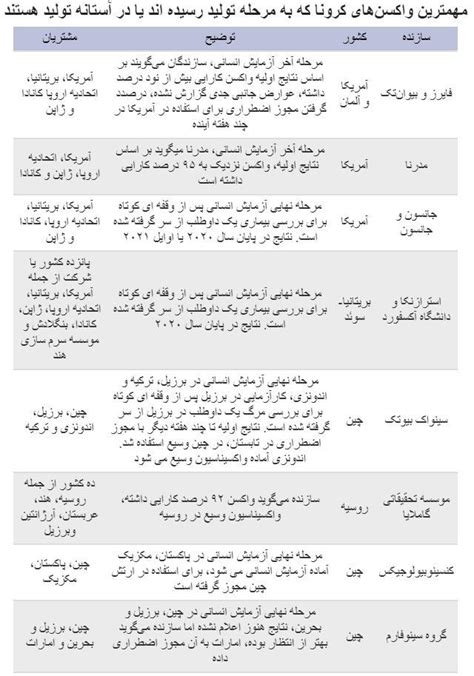 مهمترین واکسن‌های کرونا که به مرحله تولید رسیده اند یا در آستانه تولید هستند
سازنده کشور توضیح مشتریان
فایزر و بیوان‌تک
آمریکا
و آلمان
مرحله آخر آزمایش انسانی، سازندگان می‌گویند بر
اساس نتایج اولیه واکسن کارایی بیش از نود درصد
داشته، عوارض جانبی جدی گزارش نشده، درصدد
گرفتن مجوز اضطراری برای استفاده در آمریکا در
چند هفته آینده
آمریکا، بریتانیا،
اتحادیه اروپا کانادا
و ژاپن
مدرنا
آمریکا
مرحله آخر آزمایش انسانی، مدرنا میگوید بر اساس
نتایج اولیه، واکسن نزدیک به ۹۵ درصد کارایی
داشته است
آمریکا، اتحادیه
اروپا، ژاپن و کانادا
جانسون و
جانسون
آمریکا
مرحله نهایی آزمایش انسانی پس از وقفه ای کوتاه
برای بررسی بیماری یک داوطلب از سر گرفته شده
است. نتایج در پایان سال ۲۰۲۰ یا اوایل ۲۰۲۱
آمریکا، بریتانیا،
اتحادیه اروپا، کانادا
و ژاپن
استرازنکا و
دانشگاه آکسفورد
بریتانیا-
سوئد
مرحله نهایی آزمایش انسانی پس از وقفه ای کوتاه
برای بررسی بیماری یک داوطلب از سر گرفته شده
است. نتایج در پایان سال ۲۰۲۰
پانزده کشور یا
شرکت از جمله
آمریکا، بریتانیا،
اتحادیه اروپا، ژاپن،
کانادا، بنگلادش و
موسسه سرم سازی
هند
سینواک بیوتک
چین
مرحله نهایی آزمایش انسانی در برزیل، ترکیه و
اندونزی، کارآزمایی در برزیل پس از وقفه ای کوتاه
برای بررسی مرگ یک داوطلب در برزیل از سر
گرفته شد. نتایج اولیه تا چند هفته دیگر با مجوز
اضطراری در تابستان، در چین وسیع استفاده شد.
اندونزی آماده واکسیناسیون وسیع می شود
چین، برزیل،
اندونزی و ترکیه
موسسه تحقیقاتی
گامالایا
روسیه
سازنده می‌گوید واکسن ۹۲ درصد کارایی داشته،
واکسیناسیون وسیع در روسیه
ده کشور از جمله
روسیه، هند،
عربستان، آرژانتین
وبرزیل
کنسینوبیولوجیکس
چین
مرحله نهایی آزمایش انسانی در پاکستان، مکزیک
آماده آزمایش انسانی می شود، برای استفاده در ارتش
چین مجوز گرفته است
چین، پاکستان،
مکزیک
گروه سینوفارم
چین
مرحله نهایی آزمایش انسانی در چین، برزیل و
بحرین، نتایج هنوز اعلام نشده اما سازنده می‌گوید
بهتر از انتظار بوده، امارات به آن مجوز اضطراری
داده
چین، برزیل و
بحرین و امارات